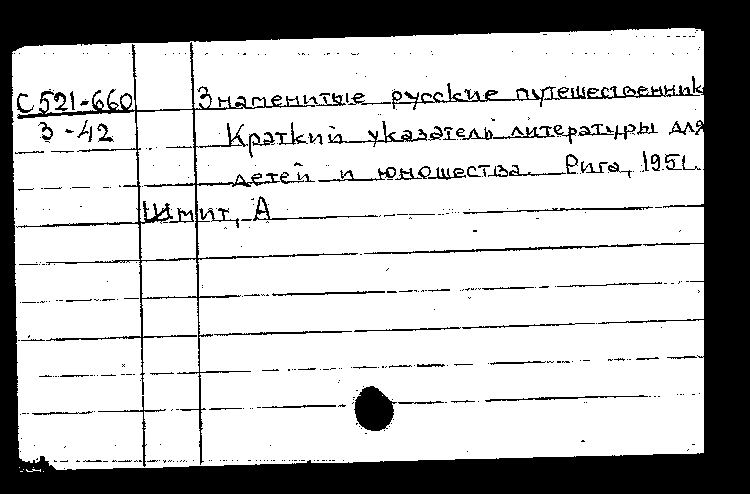 С 521-660 Знаменитые русские путешественник
З-42 Краткий указатель литературы для
детей и юношества. Рига, 1951.
Шмит, А